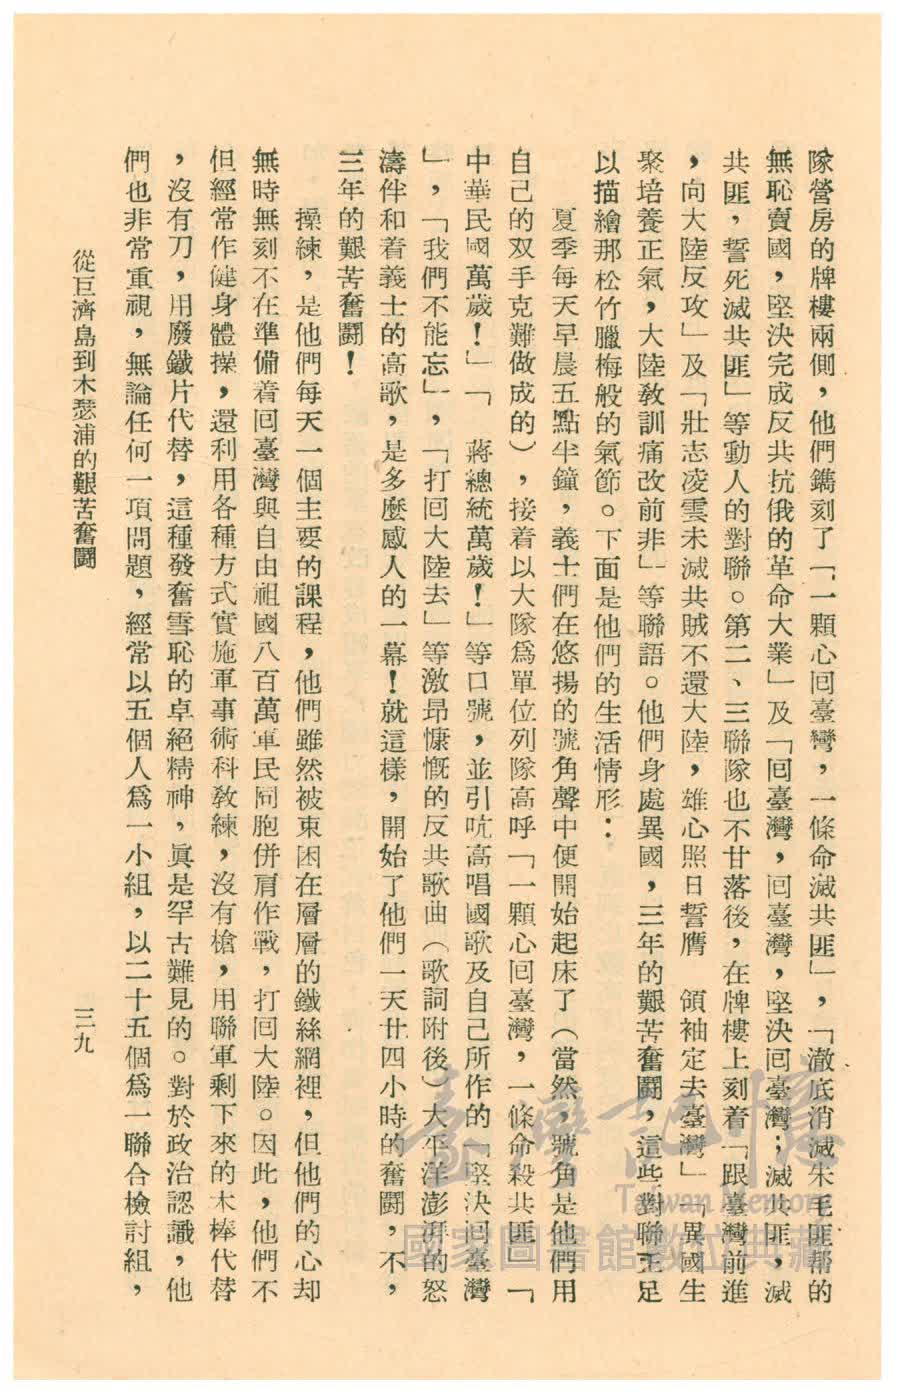 隊營房的牌樓兩側，他們鐫刻了「一顆心回臺灣，一條命滅共匪」，「澈底消滅朱毛匪幫的
無恥賣國，堅決完成反共抗俄的革命大業」及「回臺灣，回臺灣，堅決回臺灣；滅共匪，滅
共匪，誓死滅共匪」等動人的對聯。第二、三聯隊也不甘落後，在牌樓上刻着「跟臺灣前進
，向大陸反攻」及「壯志凌雲未滅共賊不還大陸，雄心照日誓膺　領袖定去臺灣」「異國生
聚培養正氣，大陸敎訓痛改前非」等聯語。他們身處異國，三年的艱苦奮鬪，這些對聯至足
以描繪那松竹臘梅般的氣節。下面是他們的生活情形：
夏季每天早晨五點半鐘，義士們在悠揚的號角聲中便開始起床了（當然，號角是他們用
自己的双手克難做成的），接着以大隊爲單位列隊高呼「一顆心回臺灣，一條命殺共匪」「
中華民國萬歲！」「　蔣總統萬歲！」等口號，並引吭高唱國歌及自己所作的「堅決回臺灣
」，「我們不能忘」，「打回大陸去」等激昻慷慨的反共歌曲（歌詞附後）大平洋澎湃的怒
濤伴和着義士的高歌，是多麼感人的一幕！就這樣，開始了他們一天廿四小時的奮鬪，不，
三年的艱苦奮鬪！
操練，是他們每天一個主要的課程，他們雖然被束困在層層的鐵絲網裡，但他們的心却
無時無刻不在準備着回臺灣與自由祖國八百萬軍民同胞併肩作戰，打回大陸。因此，他們不
但經常作健身體操，還利用各種方式實施軍事術科敎練，沒有槍，用聯軍剩下來的木棒代替
，沒有刀，用廢鐵片代替，這種發奮雪恥的卓絕精神，眞是罕古難見的。對於政治認識，他
們也非常重視，無論任何一項問題，經常以五個人爲一小組，以二十五個爲一聯合檢討組，
從巨濟島到木瑟浦的艱苦奮鬪
三九
臺灣記憶
Taiwan Memory
國家圖書館數位典藏